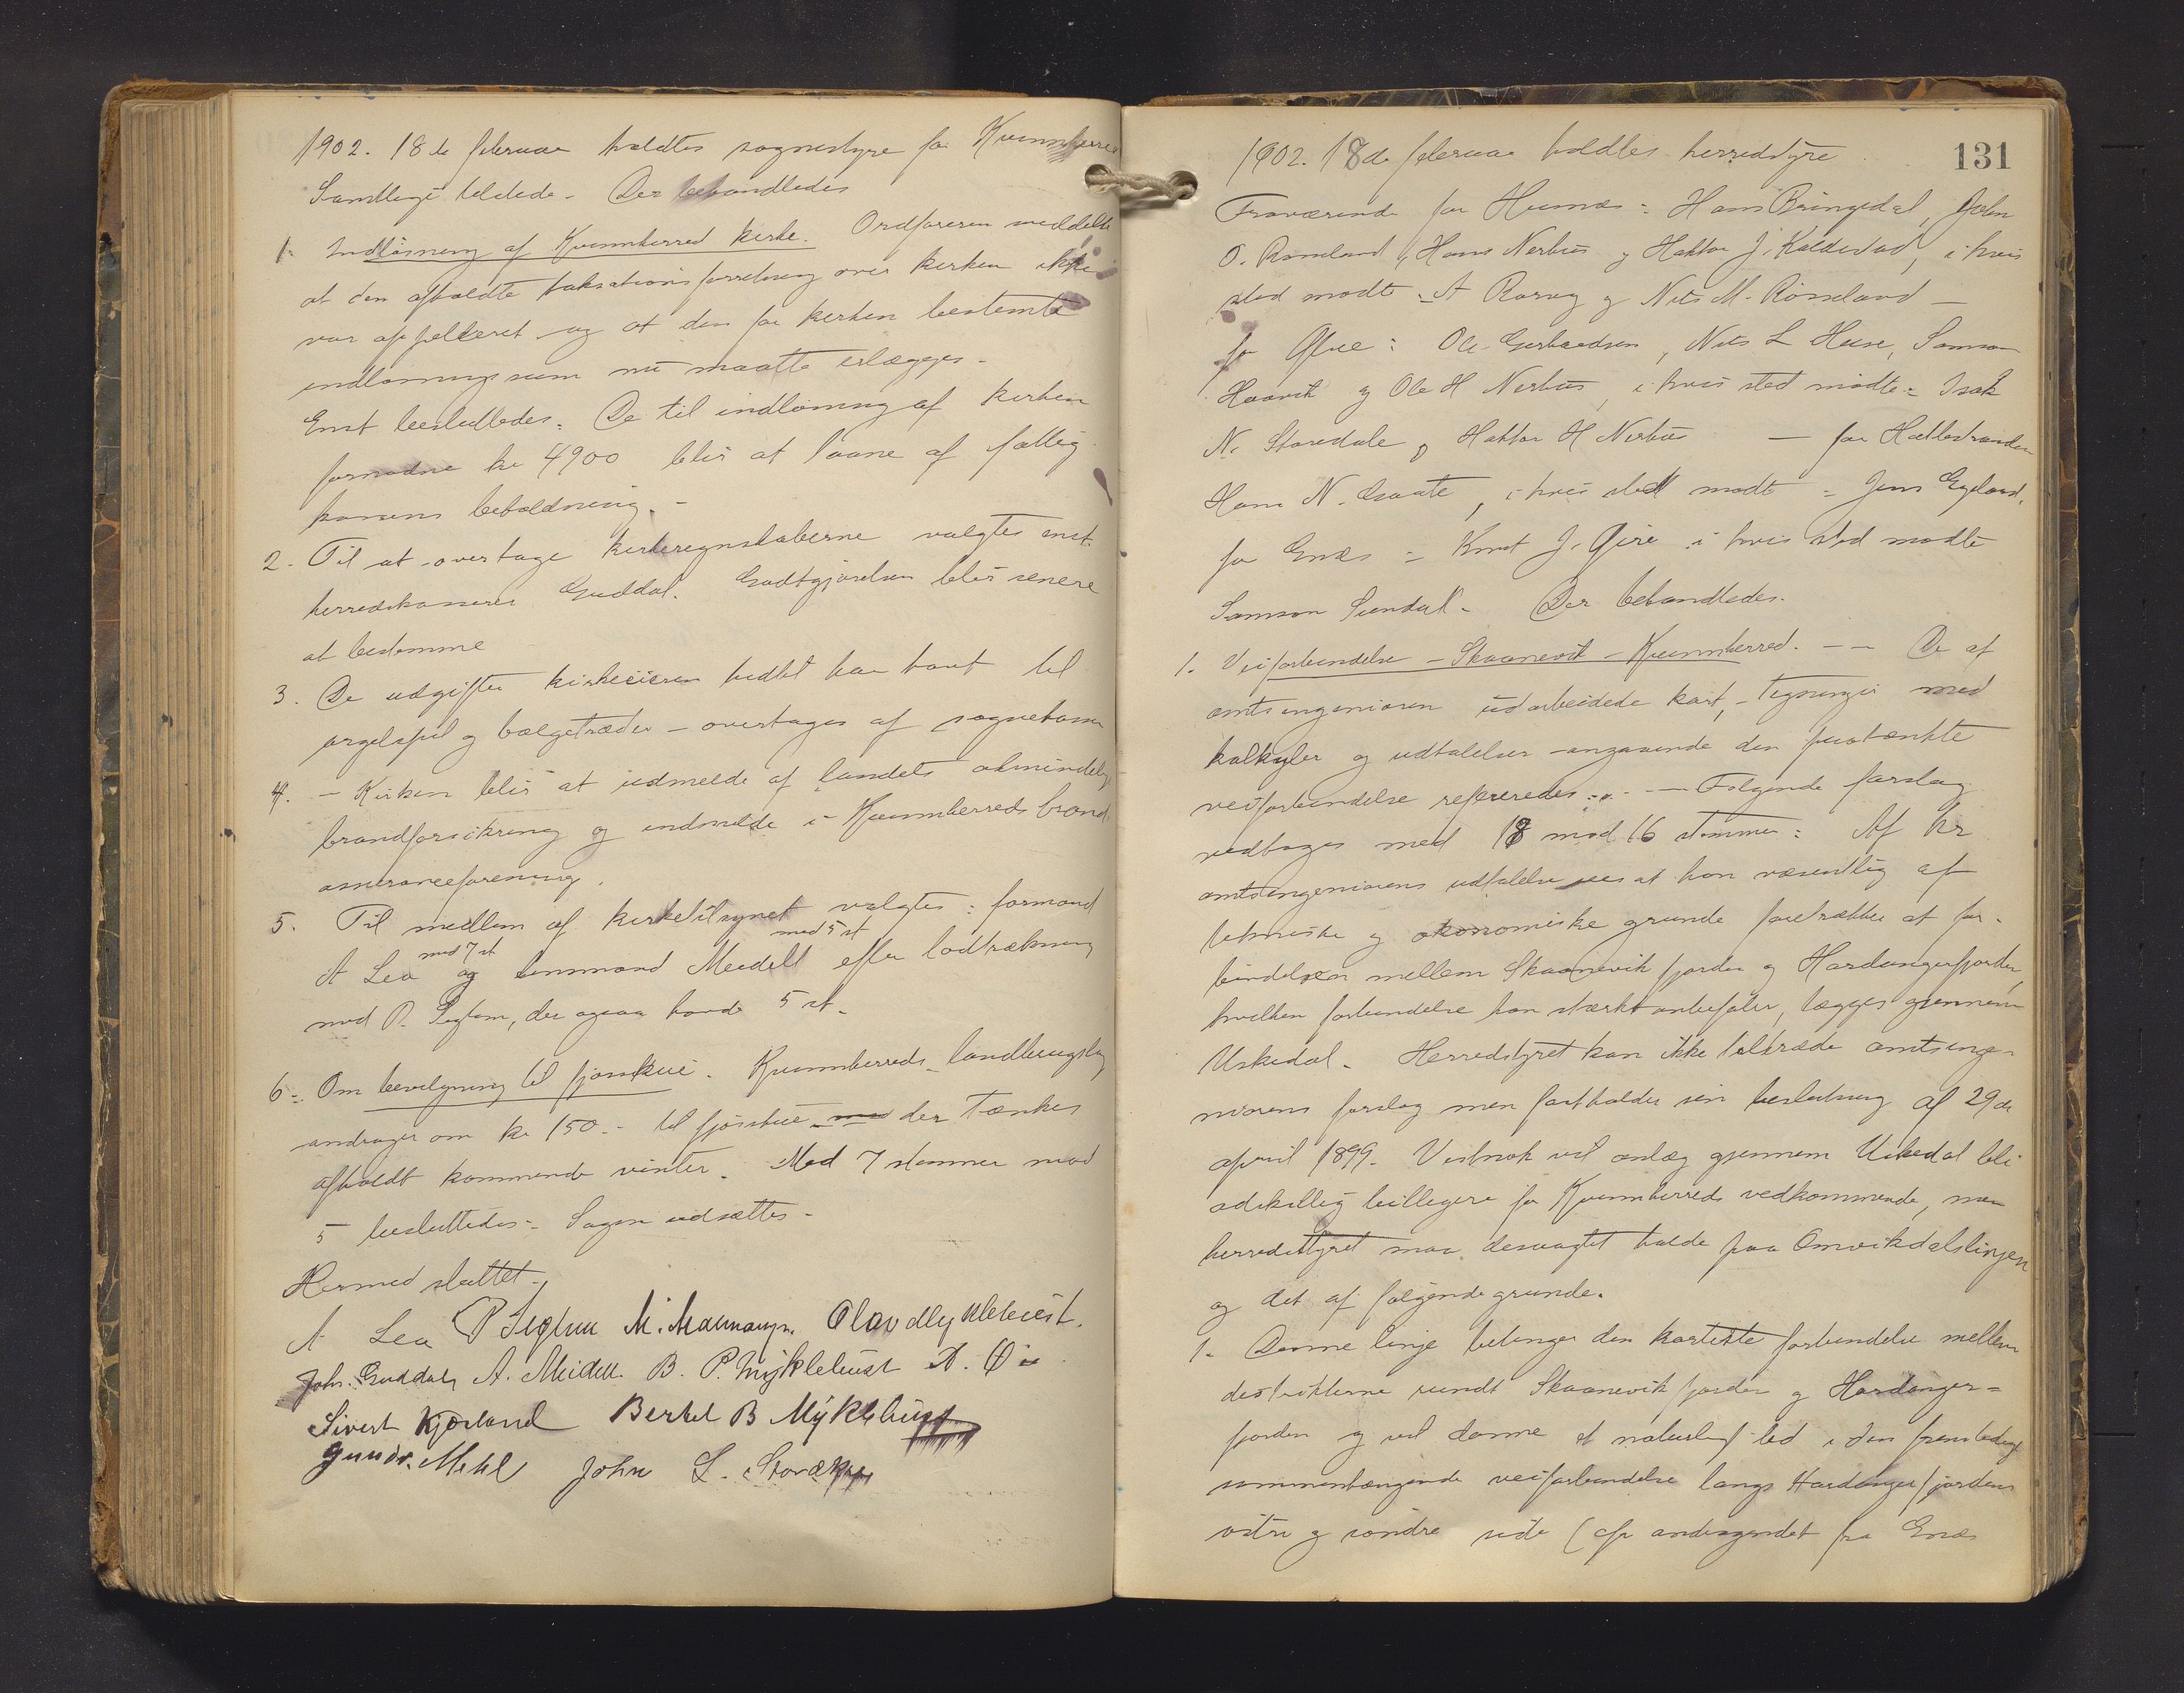 1902. 18de februar holdtes sognestyre for Kvinnherred
Samtlige tilstede. Der behandledes
1. Indløsning af Kvinnherred kirke. Ordføreren meddelte
at den afholdte taksationsforretning over kirken ikke
var appelleret og at den for kirken bestemte
indløsningssum nu maatte erlægges.
Enst besluttedes: De til indløsning af kirken
fornødne kr 4900 blir at laane af fattig
kassens beholdning. -
2. Til at overtage kirkeregnskaberne valgtes enst.
herredskasserer Guddal. Godtgjørelsen blir senere
at bestemme
3. De udgifter kirkeieren hidtil har havt til
orgelspil og bælgetræder - overtages af sognekassen
4. - Kirken blir at udmelde af landets almindelige
brandforsikring og indmelde i Kvinnherreds brand
assuranceforening.
5. Til medlem af kirketilsynet valgtes: formand
A Lea med 7 st og lensmand Meidell med 5 st efter lodtrækning
med P. Seglem, der ogsaa havde 5 st.
6. Om bevilgning til fjøsskue. Kvinnherreds landbrugslag
andrager om kr 150.- til fjøsskue der tænkes
afholdt kommende vinter. Med 7 stemmer mod
5 besluttedes: Sagen udsættes.
Hermed sluttet.
A Lea P Seglem M. Malmanger. Olav Myklebust.
John Guddal, A. Meidell. B. P. Myklebust A. Øie
Sivert Kjærland Bertel B Myklebust
Gunds. Mehl John L.
131
1902. 18de februar holdtes herredstyre
Fraværende for Husnæs: Hans Bringedal, John
O. Rømsland, Hans Nerhus og Haktor J. Kaldestad, i hvis
sted mødte A Rørvig og Nils M. Røssland -
for Ølve: Ole Gerhardsen, Nils L Huse, Samson
Haavik og Ole H Nerhus, i hvis sted mødte: Isak
N. Staredale og Haktor H Nerhus - for Hatlestranden
Hans N. , i hvis sted mødte: Jens Egeland.
for Enæs: Knut J. i hvis sted mødte
Samson Sundal. Der behandledes.
1. Veiforbindelse - Skaanevik - Kvinnherred. -- De af
amtsingeniøren udarbeidede kart, - tegninger med
kalkyler og udtalelser angaaende den paatænkte
veiforbindelse refereredes. - Følgende forslag
vedtages med 18 mod 16 stemmer: Af hr
amtsingeniørens udtalelse sees at han væsentlig af
tekniske og økonomiske grunde foretrækker at for-
bindelsen mellem Skaanevikfjorden og Hardangerfjorden,
hvilken forbindelse han stærkt anbefaler, lægges gjennem
Uskedal. Herredstyret kan ikke tiltræde amtsinge-
niørens forslag men fastholder sin beslutning af 29de
april 1899. Vistnok vil anlæg gjennem Uskedal bli
adskillig billigere for Kvinnherreds vedkommende, men
herredstyret maa desuagtet holde paa Omvikdalslinjen
og det af følgende grunde.
1. Denne linje betinger den korteste forbindelse mellem
distrikterne rundt Skaanevikfjorden og Hardanger-
fjorden og vil danne et naturligt led i den fremtidige
sammenhængende veiforbindelse langs Hardangerfjordens
østre og søndre side (cfr andragendet fra Enæs